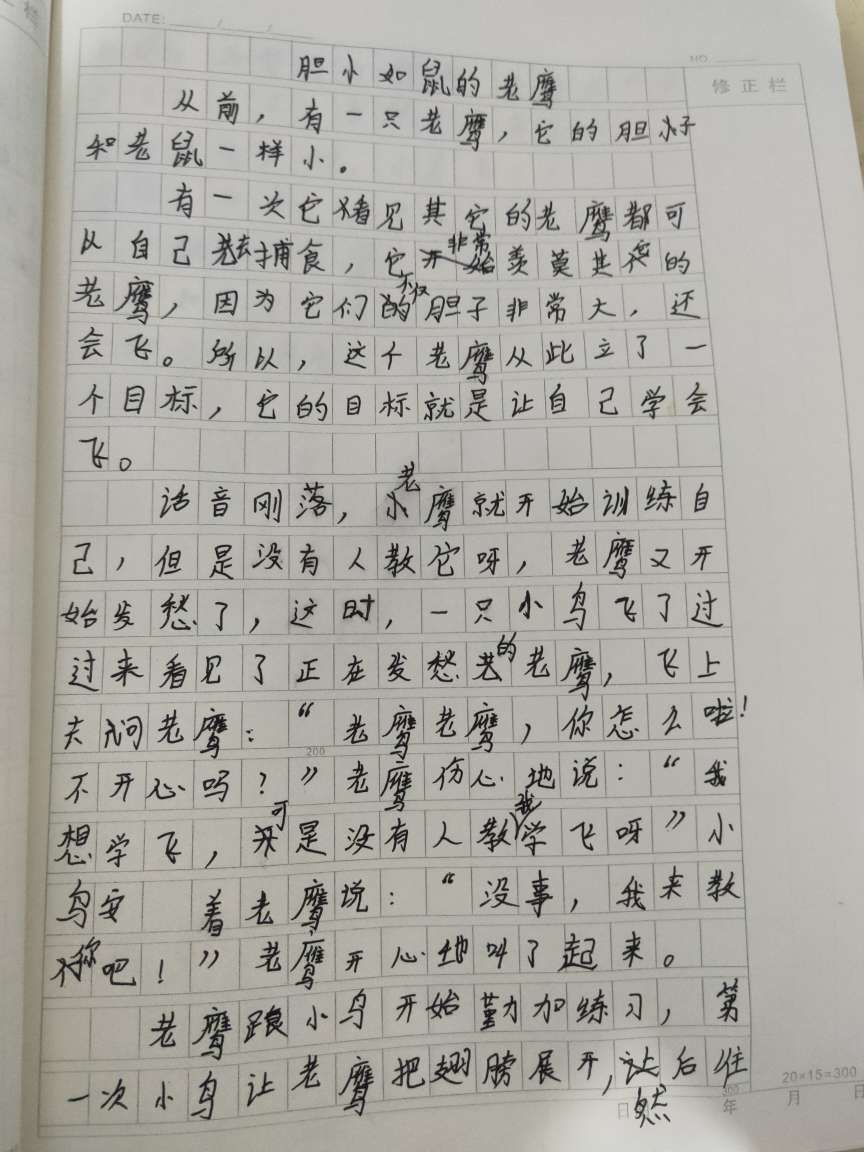 DATE: / /
NO
修正栏
胆小如鼠的老鹰
从前，有一只老鹰，它的胆子
和老鼠一样小。
有一次它看见其它的老鹰都可
以自己去捕食，它非常羡莫其它的
老鹰，因为它们不仅胆子非常大，还
会飞。所以，这个老鹰从此立了一
个目标，它的目标就是让自己学会
飞。
话音刚落，老鹰就开始训练自
己，但是没有人教它呀，老鹰又开
始发愁了，这时，一只小鸟飞了过
过来看见了正在发愁的老鹰，飞上
去问老鹰：“老鹰老鹰，你怎么啦！
200
不开心吗？”老鹰伤心地说：“我
想学飞，可是没有人教我学飞呀”小
鸟安 着老鹰说：“没事，我来教
你吧！”老鹰开心地叫了起来。
老鹰跟小鸟开始勤加练习，第
一次小鸟让老鹰把翅膀展开，然后往
300
20×15=300
年 月 日